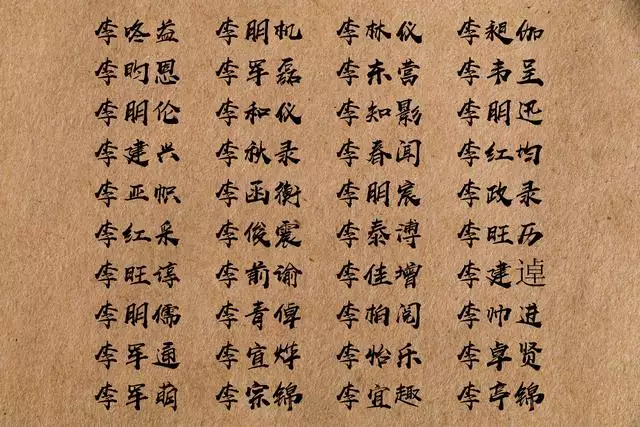 李咚益 李明机 李林仪 李昶伽
李昀恩 李军磊 李东营 李韦呈
李明伦 李和仪 李知影 李明迅
李建兴 李秋录 李春闻 李红均
李亚帜 李函衡 李明宸 李政录
李红采 李俊震 李泰溥 李旺历
李旺谆 李前谕 李佳增 李建逴
李明儒 李青倬 李柏阅 李帅进
李军通 李宜烨 李怡乐 李卓贤
李军萌 李宗锦 李宜趣 李亭锦